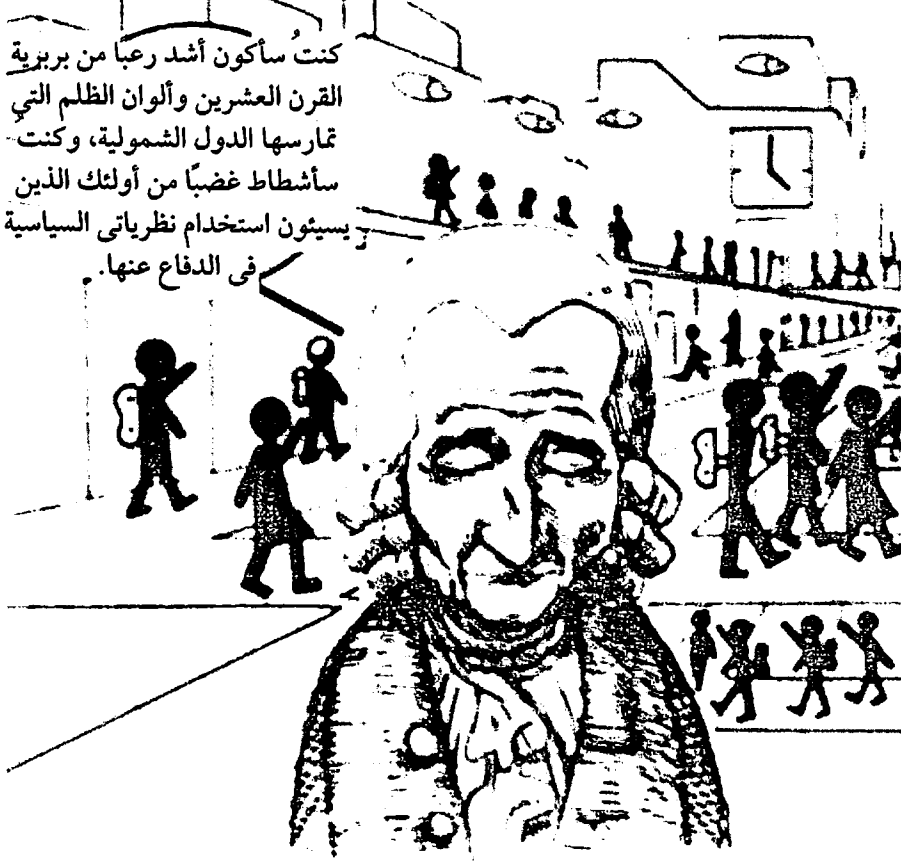 كنتُ سأكون أشد رعبا من بربرية
القرن العشرين وألوان الظلم التي
تمارسها الدول الشمولية، وكنت
سأشطاط غضبًا من أولئك الذين
يسيئون استخدام نظرياتى السياسية
فى الدفاع عنها.